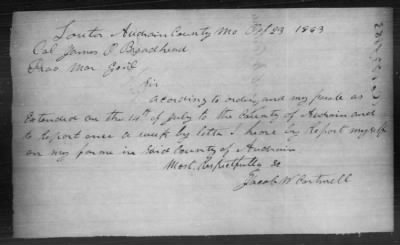 Audrain County Mo 23 1863
Col James O Broadhead
Prov Mar Genl
Sir
Acording to orders and my parole as
Extended on the 14th of July to the County of Audrain and
to Report once a week by letter I here in Report myself
on my farme in Said County of Audrain
Most Respectfully &c
Jacob W